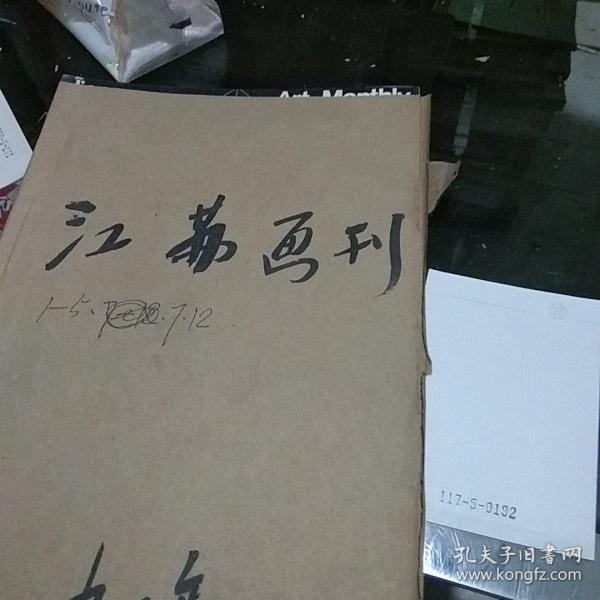 Art Monthly
江苏画刊
1-5、7.12
117-5-0192
孔夫子旧书网
www.kongfz.com